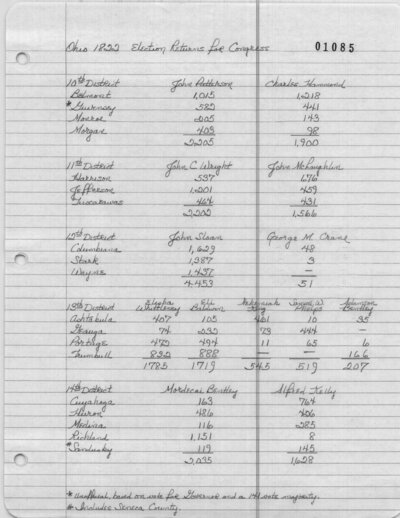 Ohio 1822 Election Returns for Congress 01085
10th District John Patterson Charles Hammond
Belmont 1,015 1,218
*Guernsey 582 441
Monroe 205 143
Morgan 403 98
2,205 1,900
11th District John C Wright John McLaughlin
Harrison 537 676
Jefferson 1,201 459
Tuscarawas 464 431
2,202 1,566
12th District John Sloan George M. Crane
Columbiana 1,629 48
Stark 1,387 3
Wayne 1,437 —
4,453 51
13th District Elisha Whittlesey Eli Baldwin Nehemiah King Samuel W. Phelps Solomon Bentley
Ashtabula 407 105 461 10 35
Geauga 74 232 73 444 —
Portage 472 494 11 65 6
Trumbull 832 888 — — 166
1785 1719 545 519 207
14th District Mordecai Bentley Alfred Kelly
Cuyahoga 163 764
Huron 486 426
Medina 116 285
Richland 1,151 8
*Sandusky 119 145
2,035 1,628
*Unofficial, based on vote for Governor and a 141 vote majority.
* Includes Seneca County.